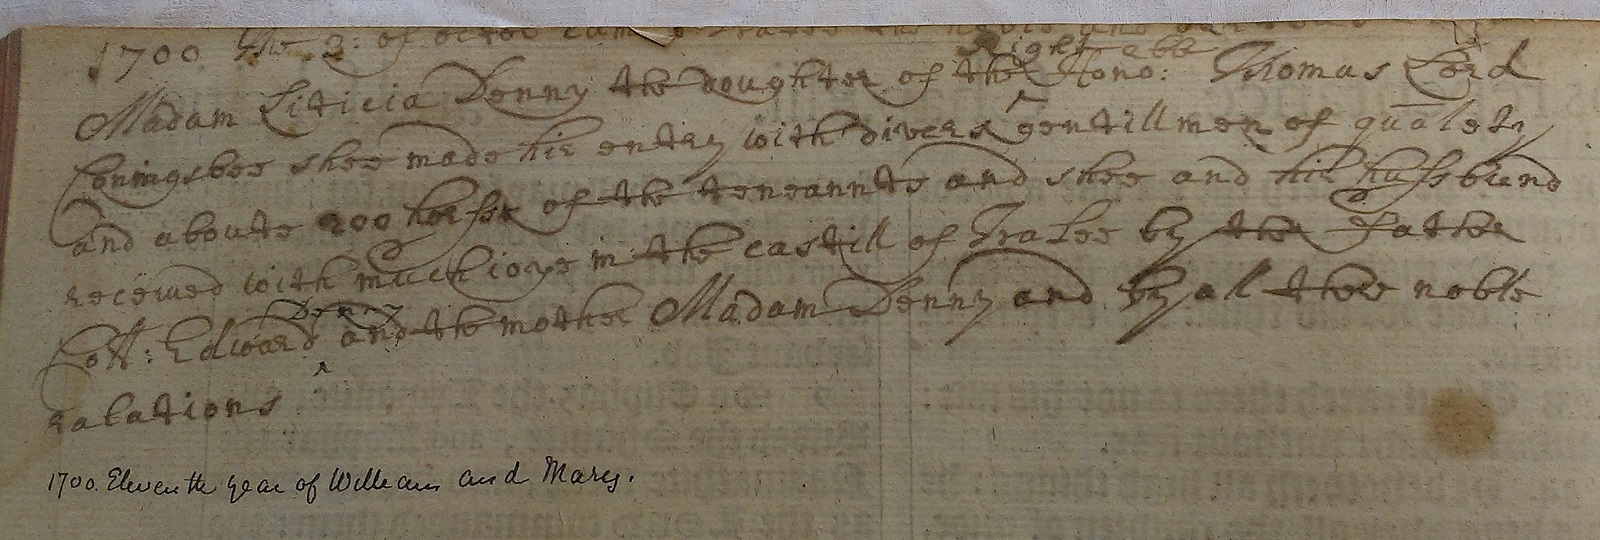 1700 the 2: of octob came to Tralee the
Right able
Madam Liticia Denny the doughter of the Hono: Thomas Lord
Coningsbee shee made hir entry with divers gentillmen of qualety
and aboute 200 horsse of the teneannts and shee and hir hussbund
received with much ioye in the castill of Tralee by the Father
Denny
Coll: Edward and the mother Madam Denny and by all there noble
ralations
1700. Eleventh year of William and Mary.